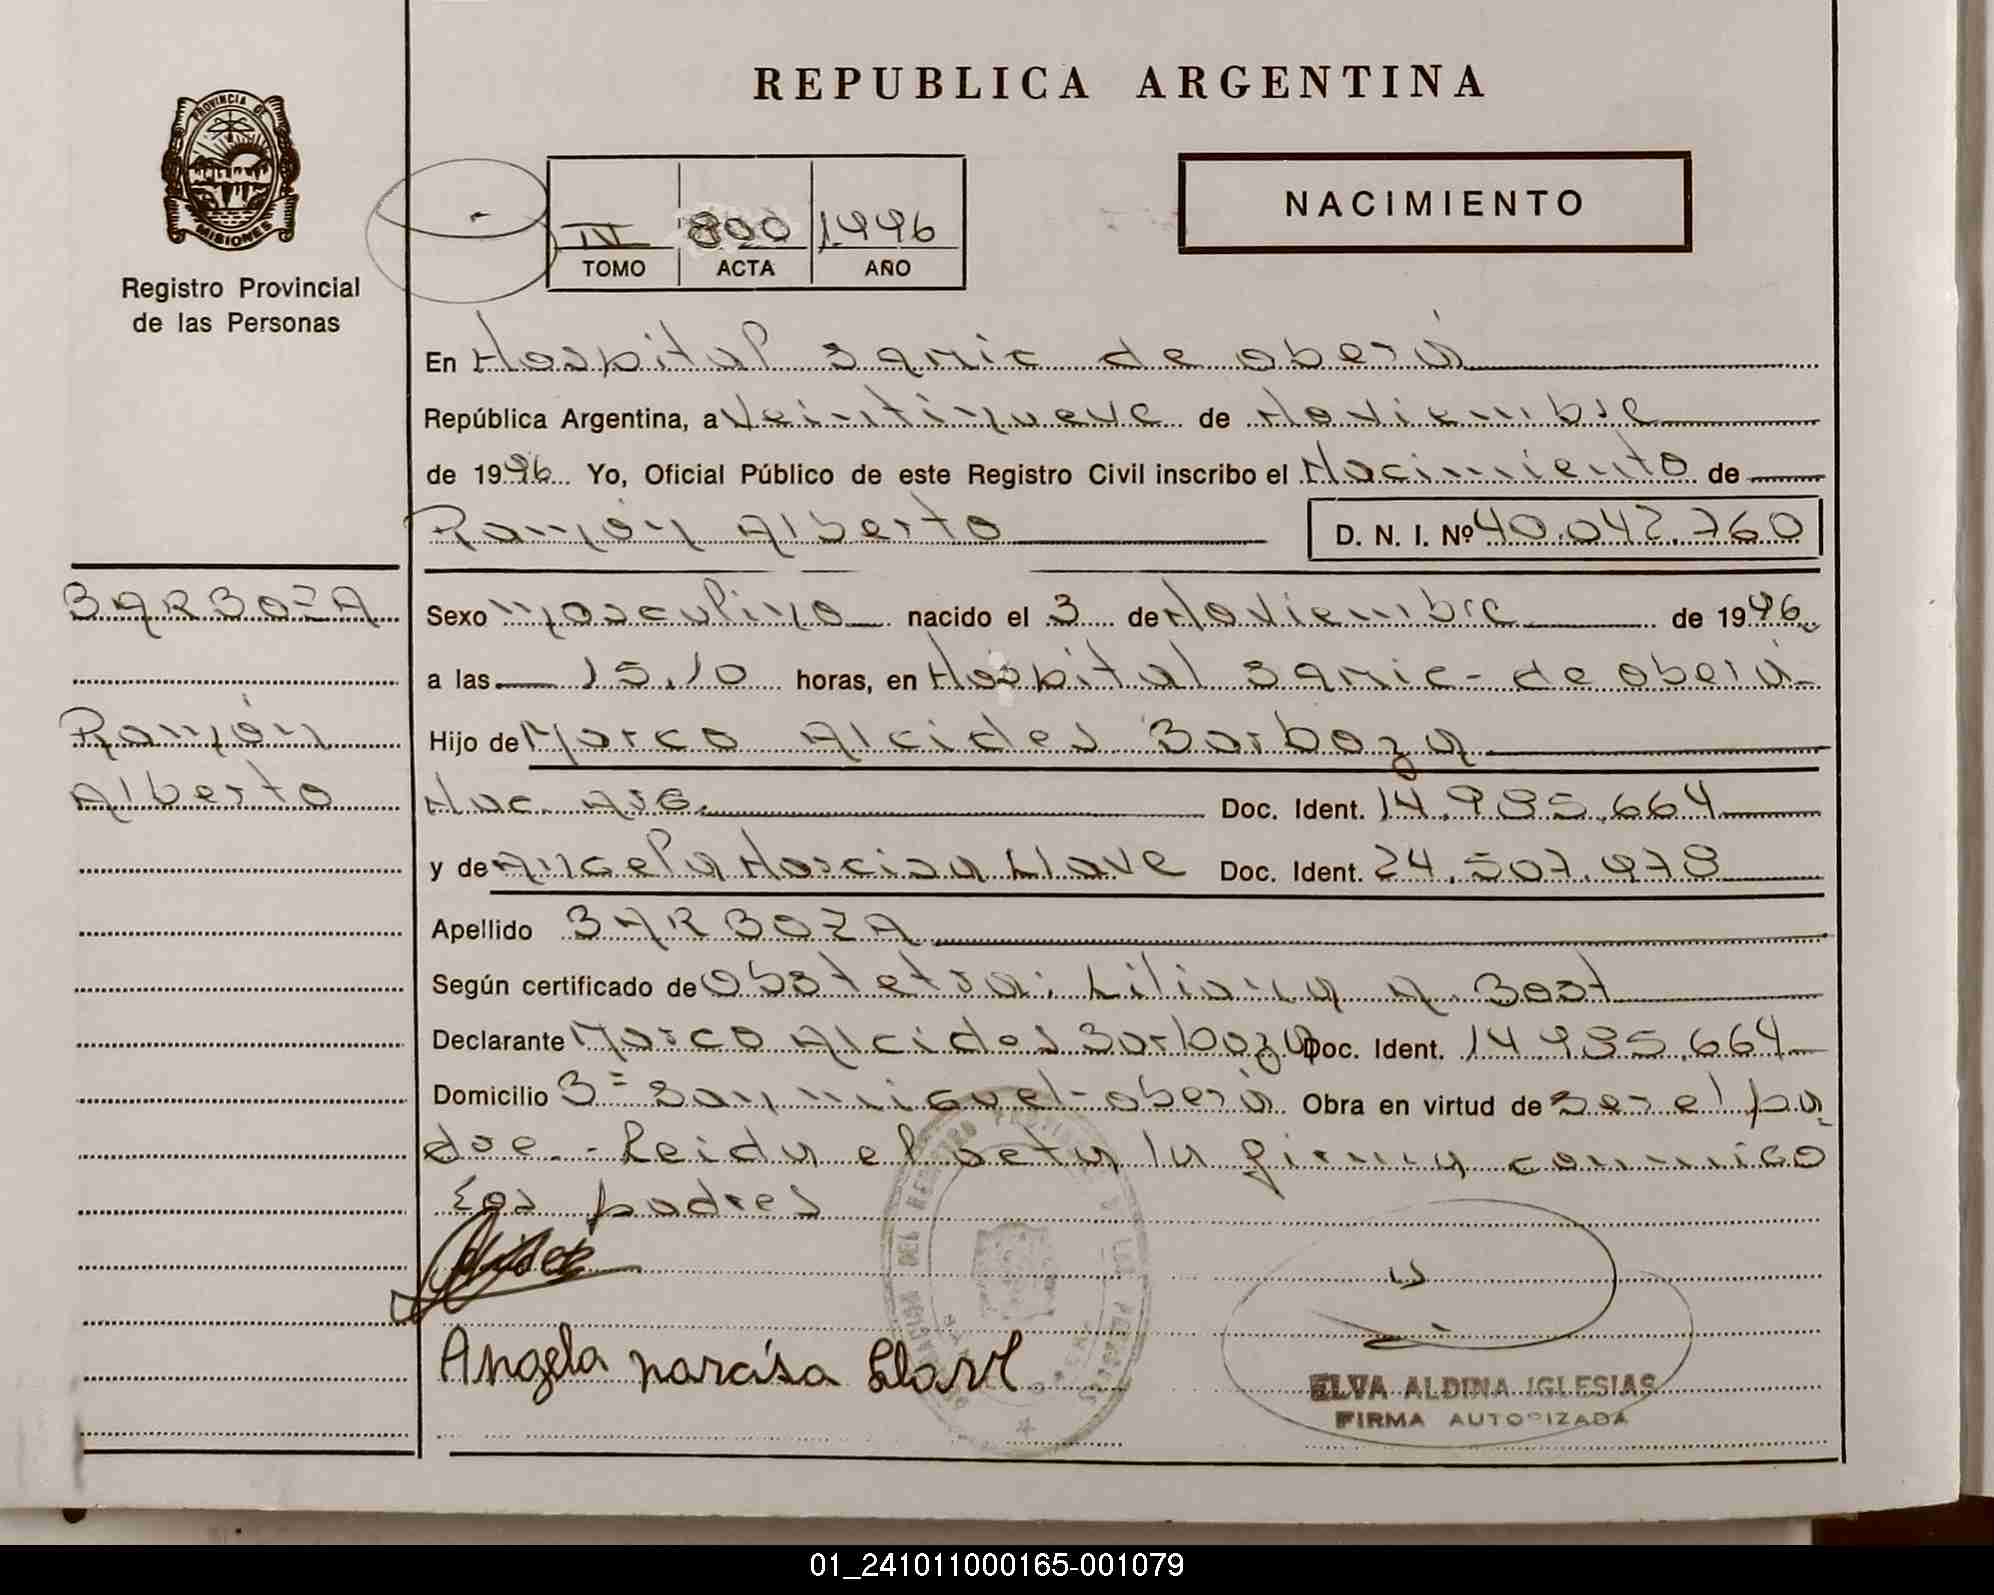 REPUBLICA ARGENTINA
PROVINCIA DE
MISIONES
Registro Provincial
de las Personas
IV 800 1996
TOMO ACTA AÑO
NACIMIENTO
En Hospital SAMIC de oberá
República Argentina, a Veintinueve de Noviembre
de 1996 Yo, Oficial Público de este Registro Civil inscribo el Nacimiento de
Ramón Alberto
D. N. I. Nº 40.042.760
BARBOZA
Ramón
Alberto
Sexo masculino nacido el 3 de Noviembre de 1996
a las 15,10 horas, en Hospital SAMIC - de oberá -
Hijo de Marco Alcides Barboza
Nac. Arg. Doc. Ident. 14.985.664
y de Angela Narcisa Llave Doc. Ident. 24.507.978
Apellido BARBOZA
Según certificado de Obstetra: Liliana A. Bast
Declarante Marco Alcides Barboza Doc. Ident. 14.985.664
Domicilio Bº San miguel - oberá Obra en virtud de ser el pa
dre.- Leida el acta la firma conmigo
Los padres
Angela narcisa Llave
ELVA ALDINA IGLESIAS
FIRMA AUTORIZADA
01_241011000165-001079